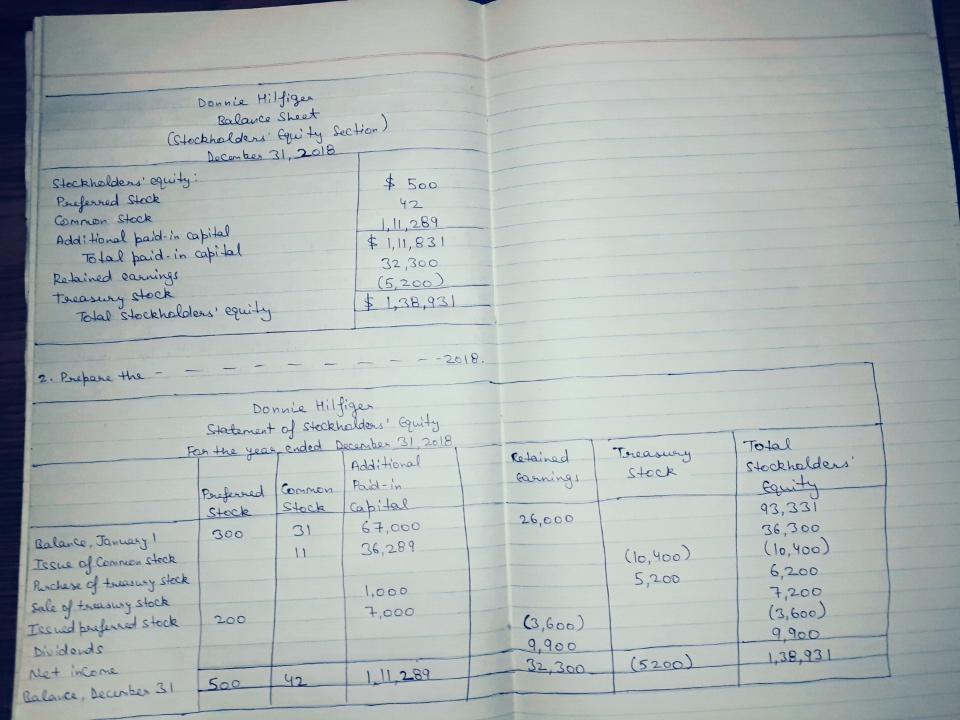 Donnie Hilfiger
Balance Sheet
(Stockholders' Equity Section)
December 31, 2018
Stockholders' equity:
Preferred Stock $ 500
Common Stock 42
Additional paid-in capital 1,11,289
Total paid-in capital $ 1,11,831
Retained earnings 32,300
Treasury stock (5,200)
Total stockholders' equity $ 1,38,931
2. Prepare the - - - - - - - - - -2018.
Donnie Hilfiger
Statement of Stockholders' Equity
For the year ended December 31, 2018
Preferred Stock Common Stock Additional Paid-in Capital Retained Earnings Treasury Stock Total Stockholders' Equity
Balance, January 1 300 31 67,000 26,000 93,331
Issue of Common stock 11 36,289 36,300
Purchase of treasury stock (10,400) (10,400)
Sale of treasury stock 1,000 5,200 6,200
Issued preferred stock 200 7,000 7,200
Dividends (3,600) (3,600)
Net income 9,900 9,900
Balance, December 31 500 42 1,11,289 32,300 (5200) 1,38,931